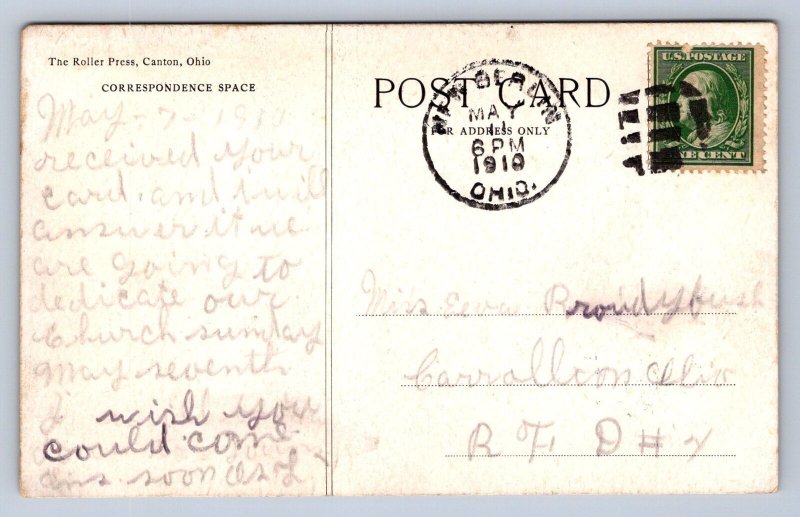 The Roller Press, Canton, Ohio
CORRESPONDENCE SPACE
May - 7 - 191
received your
card. and I will
answer it we
are going to
dedicate our
Church sunday
May seventh
I wish you
could come
ans soon as I
POST CARD
FOR ADDRESS ONLY
BERLIN
MAY
11
6 PM
1910
OHIO.
U.S. POSTAGE
ONE CENT
Miss Eeva Broudybush
Carrollton Ohio
R F D #